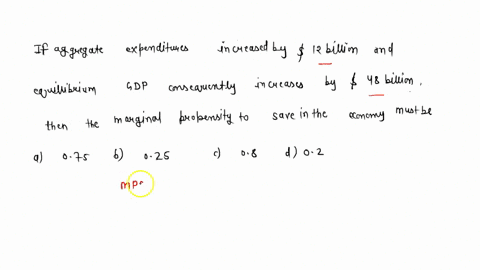 If aggregate expenditures increased by $ 12 billion and
equilibrium GDP consequently increases by $ 48 billion,
then the marginal propensity to save in the economy must be
a) 0.75 b) 0.25 c) 0.8 d) 0.2
mp